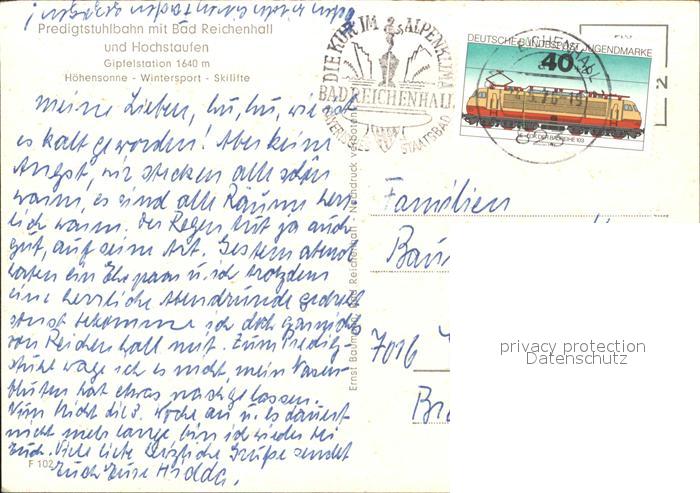 Predigtstuhlbahn mit Bad Reichenhall
und Hochstaufen
Gipfelstation 1640 m
Höhensonne - Wintersport - Skilifte
Meine Lieben, hu, hu, wie ist
es kalt geworden! Aber keine
Angst, wir stecken alle schön
warm, es sind alle Räume herr-
lich warm. Der Regen tut ja auch
gut, auf seine Art. Gestern abend
haben ein Ehepaar u. ich trotzdem
eine herrliche Abendrunde gedreht
sonst bekomme ich doch garnichts
von Reichenhall mit. Zum Predigt-
stuhl wage ich es nicht, mein Nasen-
bluten hat etwas nachgelassen.
Nun bricht die 3. Woche an u. es dauert
nicht mehr lange, bin ich wieder bei
Euch. Viele liebe herzliche Grüße sendet
Euch Eure Hidda.
F 102
Ernst Baum Bad Reichenhall - Nachdruck verboten
DIE KUR IM ALPENKLIMA
BAD REICHENHALL
BAYERISCHES STAATSBAD
DEUTSCHE BUNDESPOST JUGENDMARKE
40
BAUREIHE 103
2
Familien
7016
privacy protection
Datenschutz